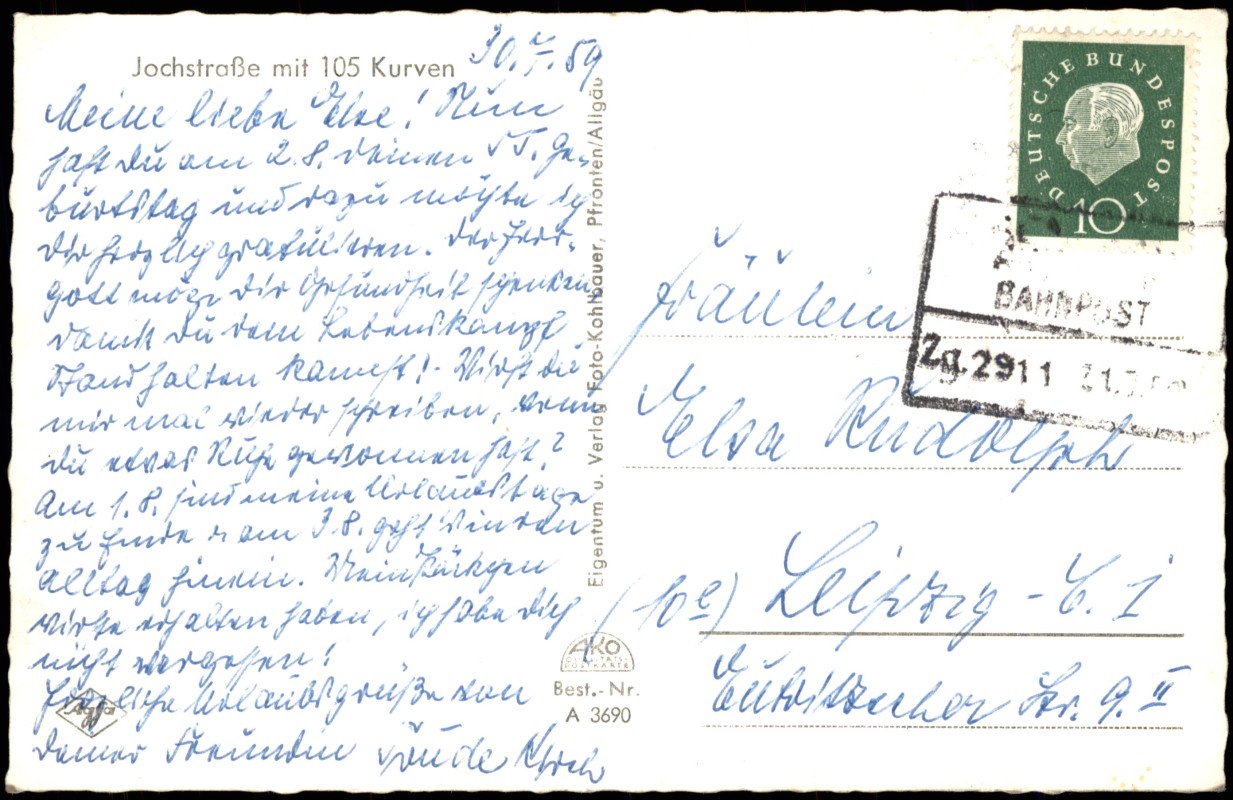 Jochstraße mit 105 Kurven
30.7.59
Meine liebe Else! Nun
hast Du am 2.8. deinen 55. Ge-
burtstag und dazu möchte ich
Dir herzlich gratulieren. Der Herr-
gott möge Dir Gesundheit schenken,
damit Du dem Lebenskampf
standhalten kannst! - Wirst du
mir mal wieder schreiben, wenn
du etwas Ruhe gewonnen hast?
Am 1.8. sind meine Urlaubstage
zu Ende u. am 3.8. geht's in den
Alltag hinein. Mein Päckchen
wirst erhalten haben, ich habe Dich
nicht vergessen!
Herzliche Urlaubsgrüße von
deiner Freundin
Eigentum u. Verlag Foto-Kohlbauer, Pfronten/Allgäu
Agfa
AKO
QUALITÄTS-
POSTKARTE
Best.-Nr.
A 3690
DEUTSCHE BUNDESPOST
10
BAHNPOST
Zg. 2911 31.7.
Fräulein
Elsa Rudolph
(10a) Leipzig - C. 1
Eutritzscher Str. 9. II